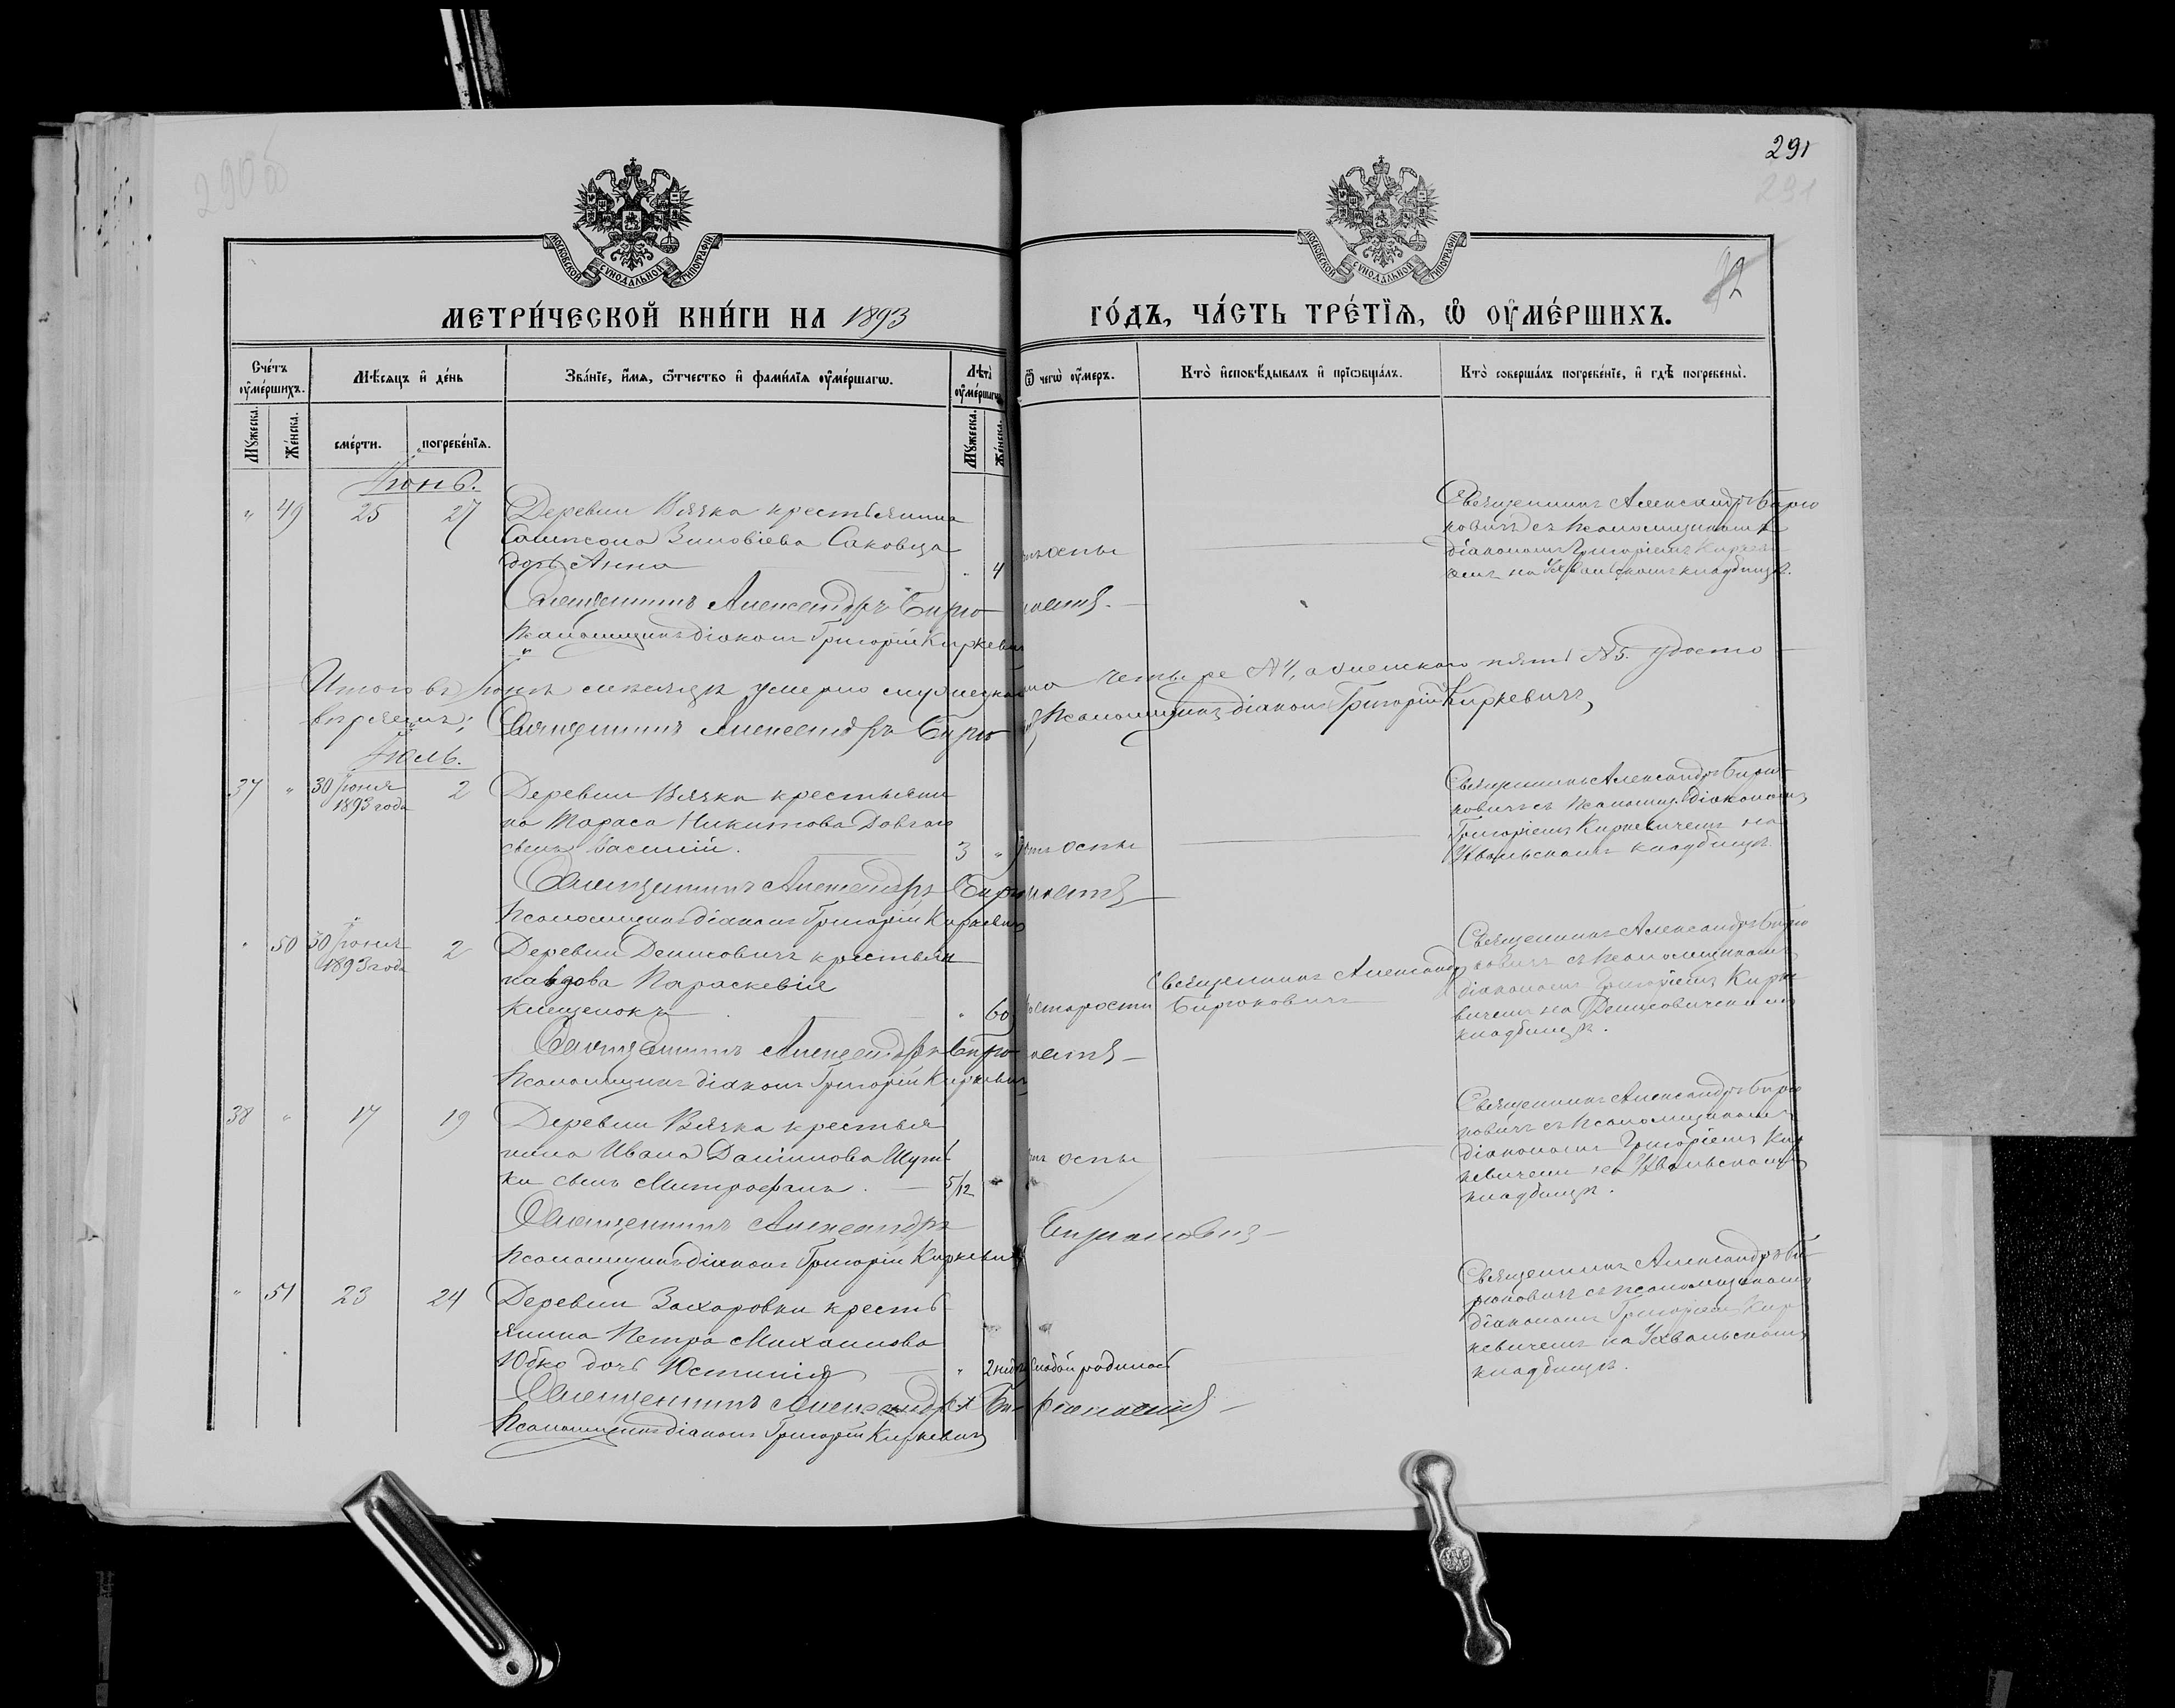 290 об
291
291
МОСКОВСКОЙ СѴНОДАЛЬНОЙ ТИПОГРАФІИ
МОСКОВСКОЙ СѴНОДАЛЬНОЙ ТИПОГРАФІИ
32
МЕТРИ́ЧЕСКОЙ КНИ́ГИ НА 1893
ГО́ДЪ, ЧА́СТЬ ТРЕ́ТЇѦ, Ѡ҆ ОУ҆МЕ́РШИХЪ.
Сче́тъ оу҆ме́ршихъ.
Мѣ́сѧцъ и҆ де́нь
Зва́нїе, и҆́мѧ, ѻ҆́тчество и҆ фами́лїѧ оу҆ме́ршагѡ.
Лѣ́та оу҆ме́ршагѡ
Ѿ чегѡ̀ оу҆́меръ.
Кто̀ и҆сповѣ́дывалъ и҆ прїѡбща́лъ.
Кто̀ соверша́лъ погребе́нїе, и҆ гдѣ̀ погребены̀.
Мꙋ́жеска.
Же́нска.
сме́рти.
погребе́нїѧ.
Мꙋ́жеска.
Же́нска.
Іюнь.
" 49 25 27 Деревни Вячка крестьянина
Сампсона Зиновіева Саковца
дочь Анна " 4 отъ оспы
Священникъ Александръ Бирю
ковичъ съ псаломщикомъ
діакономъ Григоріемъ Кирке
на Ухвальскомъ кладбищѣ.
Священникъ Александръ Бирюковичъ
Псаломщикъ діаконъ Григорій Киркевичъ
Итого въ Іюнѣ мѣсяцѣ умерло мужескаго четыре №4, а женскаго пять №5. Удосто
вѣряемъ; Священникъ Александръ Бирю Псаломщикъ діаконъ Григорій Киркевичъ
Іюль.
37 " 30 Іюня 1893 года 2 Деревни Вячка крестьяни
на Тараса Никитова Довгаго
сынъ Василій. 3 " отъ оспы
Священникъ Александръ Бирю
ковичъ съ псаломщ. діакономъ
Григоріемъ Киркевичемъ на
Ухвальскомъ кладбищѣ
Священникъ Александръ Бирюковичъ
Псаломщикъ діаконъ Григорій Киркевичъ
" 50 30 Іюня 1893 года 2 Деревни Денисовичъ крестьян
ка вдова Параскевія
Клещенокъ " 60 отъ старости
Священникъ Александръ
Бирюковичъ
Священникъ Александръ Бирю
ковичъ съ псаломщикомъ
діакономъ Григоріемъ Кирке
вичемъ на Денисовическомъ
кладбищѣ.
Священникъ Александръ Бирюковичъ
Псаломщикъ діаконъ Григорій Киркевичъ
38 " 17 19 Деревни Вячка крестья
нина Ивана Даніилова Шуть
ки сынъ Митрофанъ. 5/12 " отъ оспы
Священникъ Александръ Бирю
ковичъ съ псаломщикомъ
діакономъ Григоріемъ Кир
кевичемъ на Ухвальскомъ
кладбищѣ.
Священникъ Александръ Бирюковичъ
Псаломщикъ діаконъ Григорій Киркевичъ
" 51 23 24 Деревни Захаровки кресть
янина Петра Михаилова
Юбко дочь Юстинія " 2 нед. слабой родилась
Священникъ Александръ Би
рюковичъ съ псаломщикомъ
діакономъ Григоріемъ Кир
кевичемъ на Ухвальскомъ
кладбищѣ.
Священникъ Александръ Бирюковичъ
Псаломщикъ діаконъ Григорій Киркевичъ